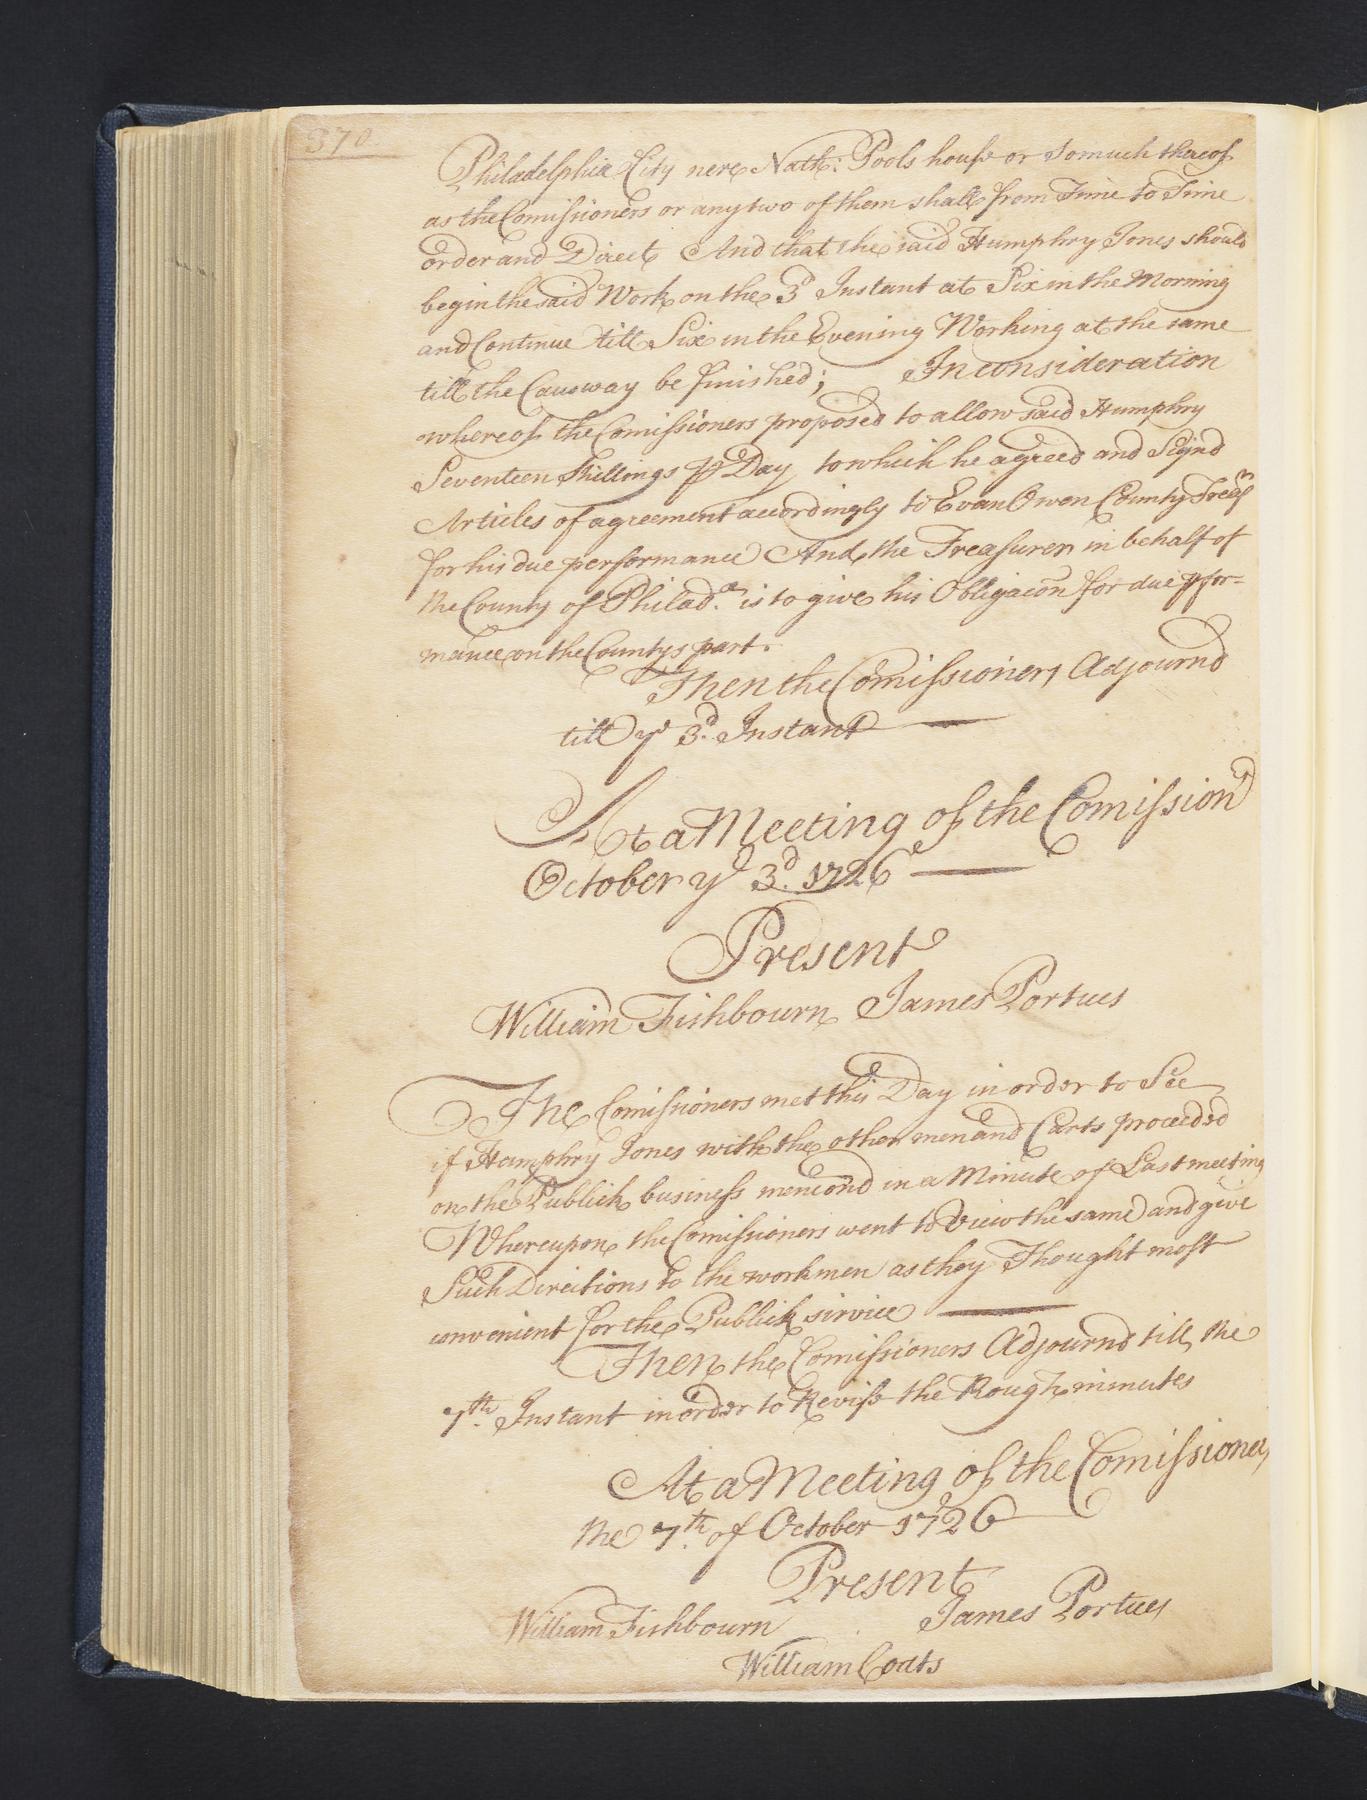 370.
Philadelphia City nere Nath: Pools house or Somuch thereof
as the Comissioners or any two of them shall from Time to Time
order and Direct And that the said Humphry Jones should
begin the said Work on the 3d Instant at Six in the Morning
and Continue till Six in the Evening Working at the same
till the Causway be finished; In consideration
whereof the Comissioners proposed to allow said Humphry
Seventeen Shillings p Day to which he agreed and Signd
Articles of agreement accordingly to Evan Owen County
for his due performance And the Treasurer in behalf of
the County of Philada. is to give his Obligacon for due pfor=
mance on the Countys part.
Then the Comissioners Adjournd
till ye 3d. Instant
At a Meeting of the Comissionrs
October ye 3d. 1726
Present
William Fishbourn James Portues
The Comissioners met this Day in order to See
if Humphry Jones with the other men and Carts proceeded
on the Publick business mencond in a Minute of Last meeting
Whereupon the Comissioners went to View the same and give
Such Directions to the workmen as they Thought most
convenient for the Publick service
Then the Comissioners Adjournd till the
7th. Instant in order to Revise the Rough minutes
At a Meeting of the Comissioners
the 7th. of October 1726
Present
William Fishbourn James Portues
William Coats